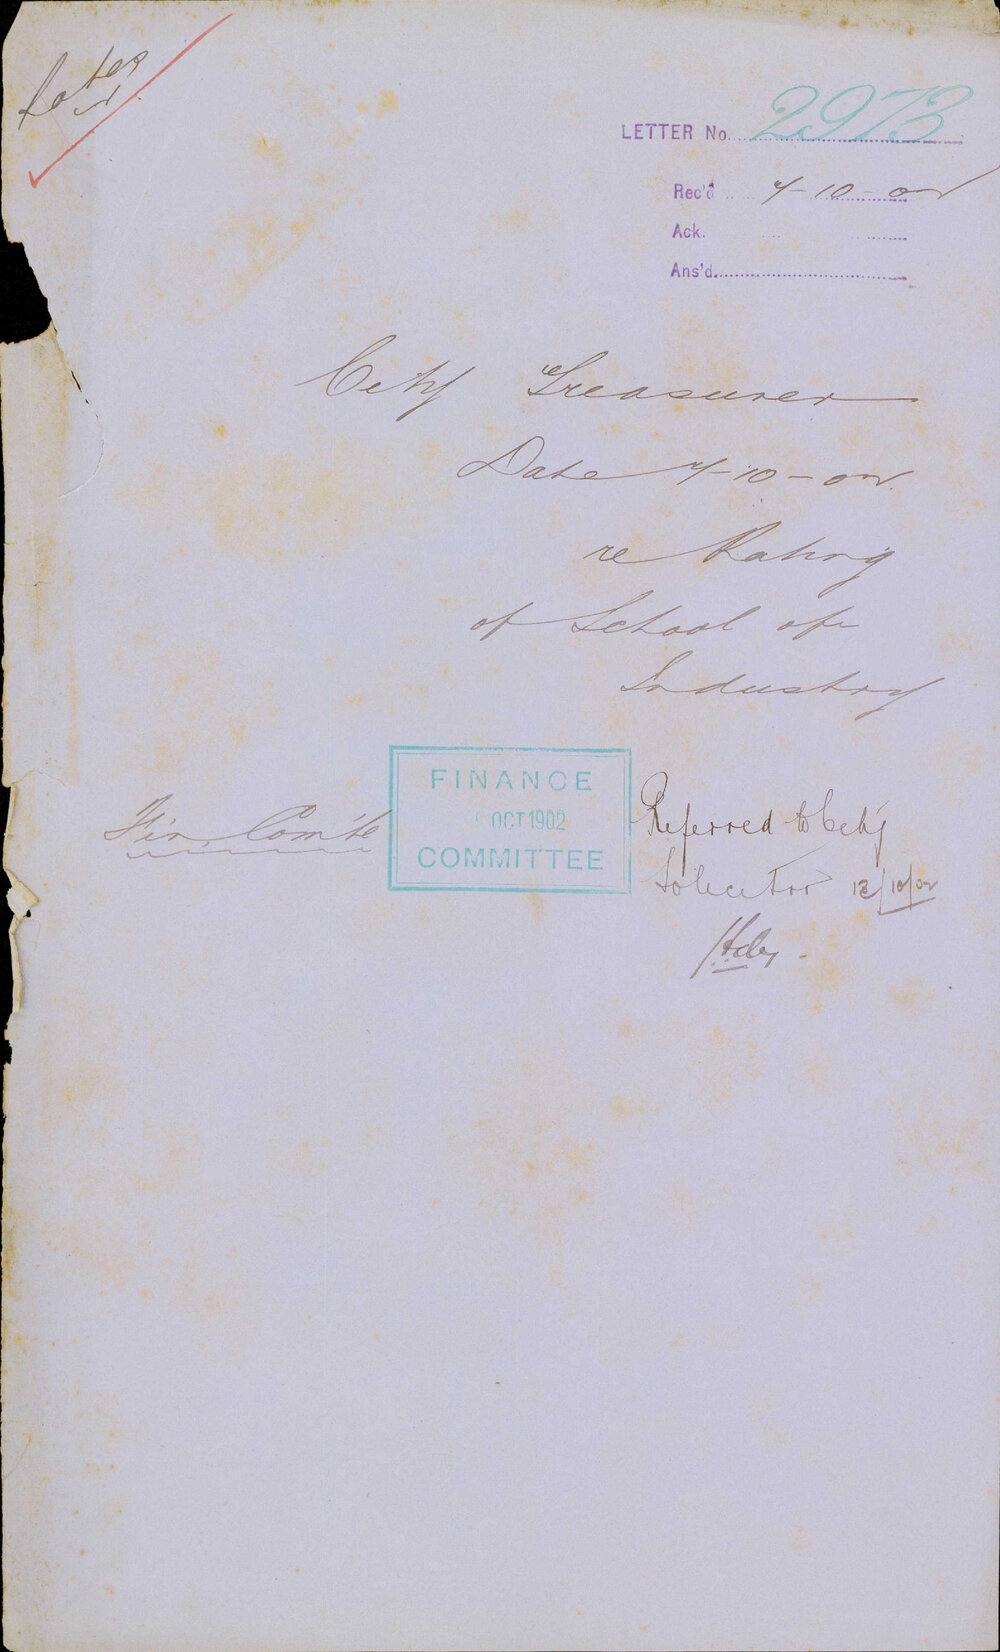 Rates
LETTER No. 2973
Rec'd 7-10-02
Ack.
Ans'd.
City Treasurer
Date 7-10-02
re Rating
of School of
Industry
Fin Com'te
FINANCE
OCT 1902
COMMITTEE
Referred to City
Solicitor 13/10/02